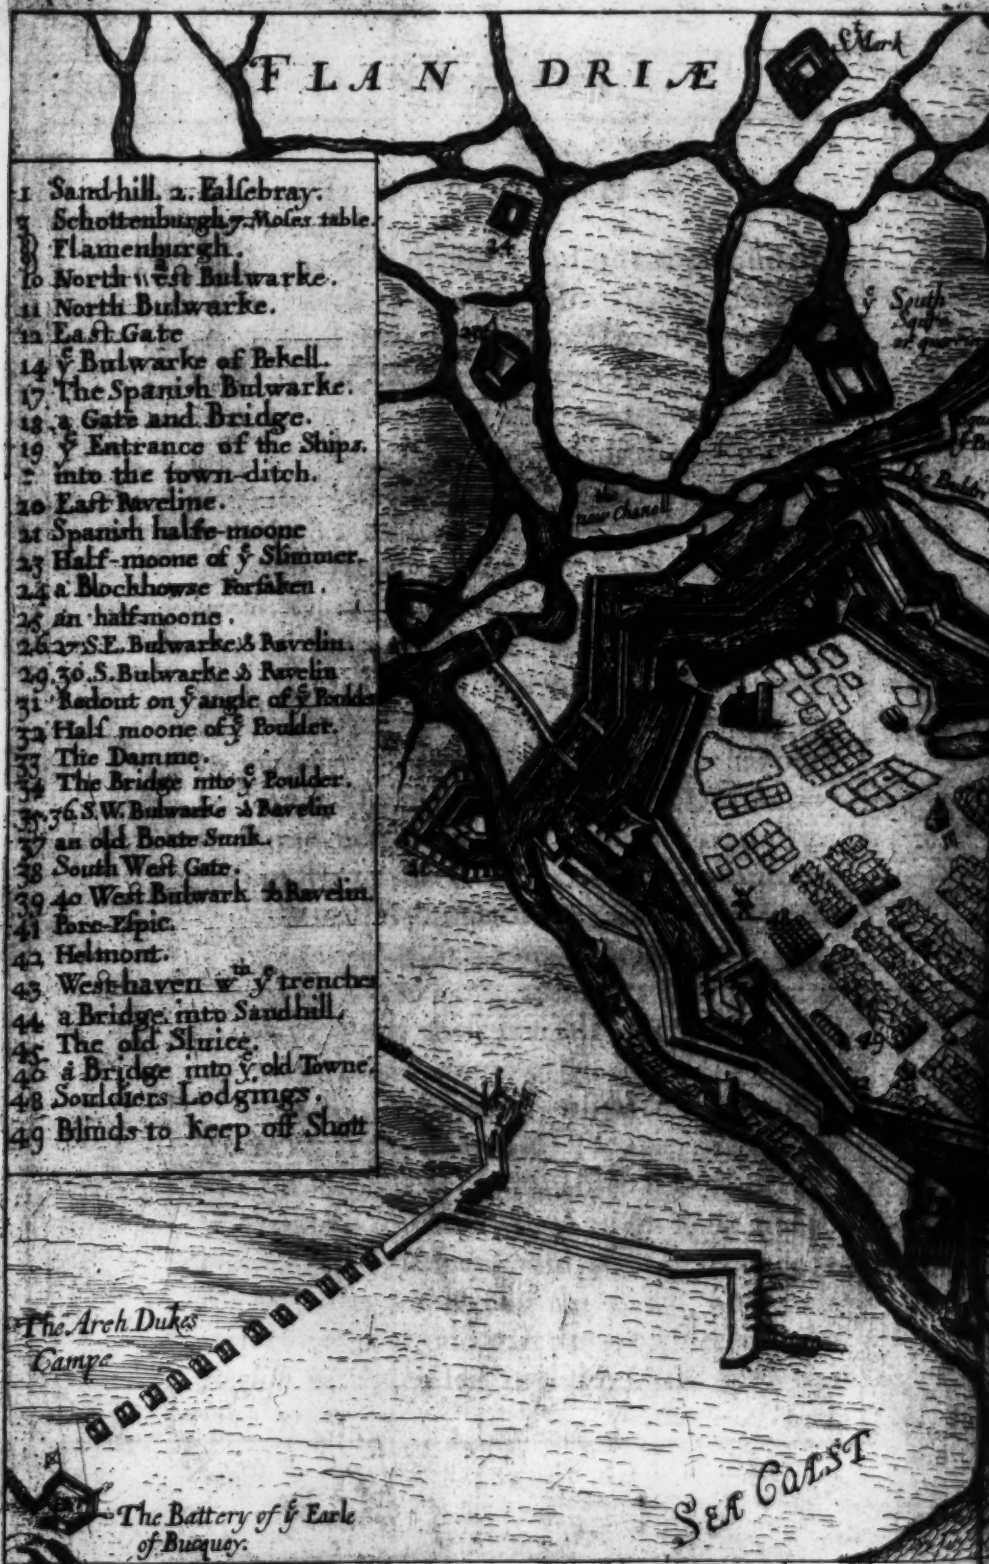 FLANDRIÆ
St Mark
1 Sandhill. 2. Falſebray.
3 Schottenburgh 7. Moſes table
Flamenburgh.
10 North weſt Bulwarke.
11 North Bulwarke.
12 Eaſt Gate
14 yͤ Bulwarke of Pekell.
17 The Spanish Bulwarke.
18 a Gate and Bridge.
19 yͤ Entrance of the Ships.
into the town-ditch.
20 Eaſt Raveline.
21 Spanish halfe-moone
23 Half-moone of yͤ Slimmer.
24 a Blockhowse Forſaken.
25 an half-moone.
26 27 S.E. Bulwarke & Ravelin.
29. 30. S. Bulwarke & Ravelin
31 Redout on yͤ angle of yͤ Poulder
32 Half moone of yͤ Poulder.
33 The Damme.
34 The Bridge into yͤ Poulder.
35. 36 S.W. Bulwarke & Ravelin
37 an old Boate Sunk.
38 South Weſt Gate.
39 40 Weſt Bulwark & Ravelin
41 Porc-Eſpic.
42 Helmont.
43 Weſt-haven wᵗʰ yͤ trenches
44 a Bridge into Sandhill.
45 The old Sluice.
46 a Bridge into yͤ old Towne.
48 Souldiers Lodgings.
49 Blinds to keep off Shott
24
25
yͤ South
the
new Chanell
21
49
The Arch Dukes
Campe
The Battery of yͤ Earle
of Bucquoy.
SEA COAST